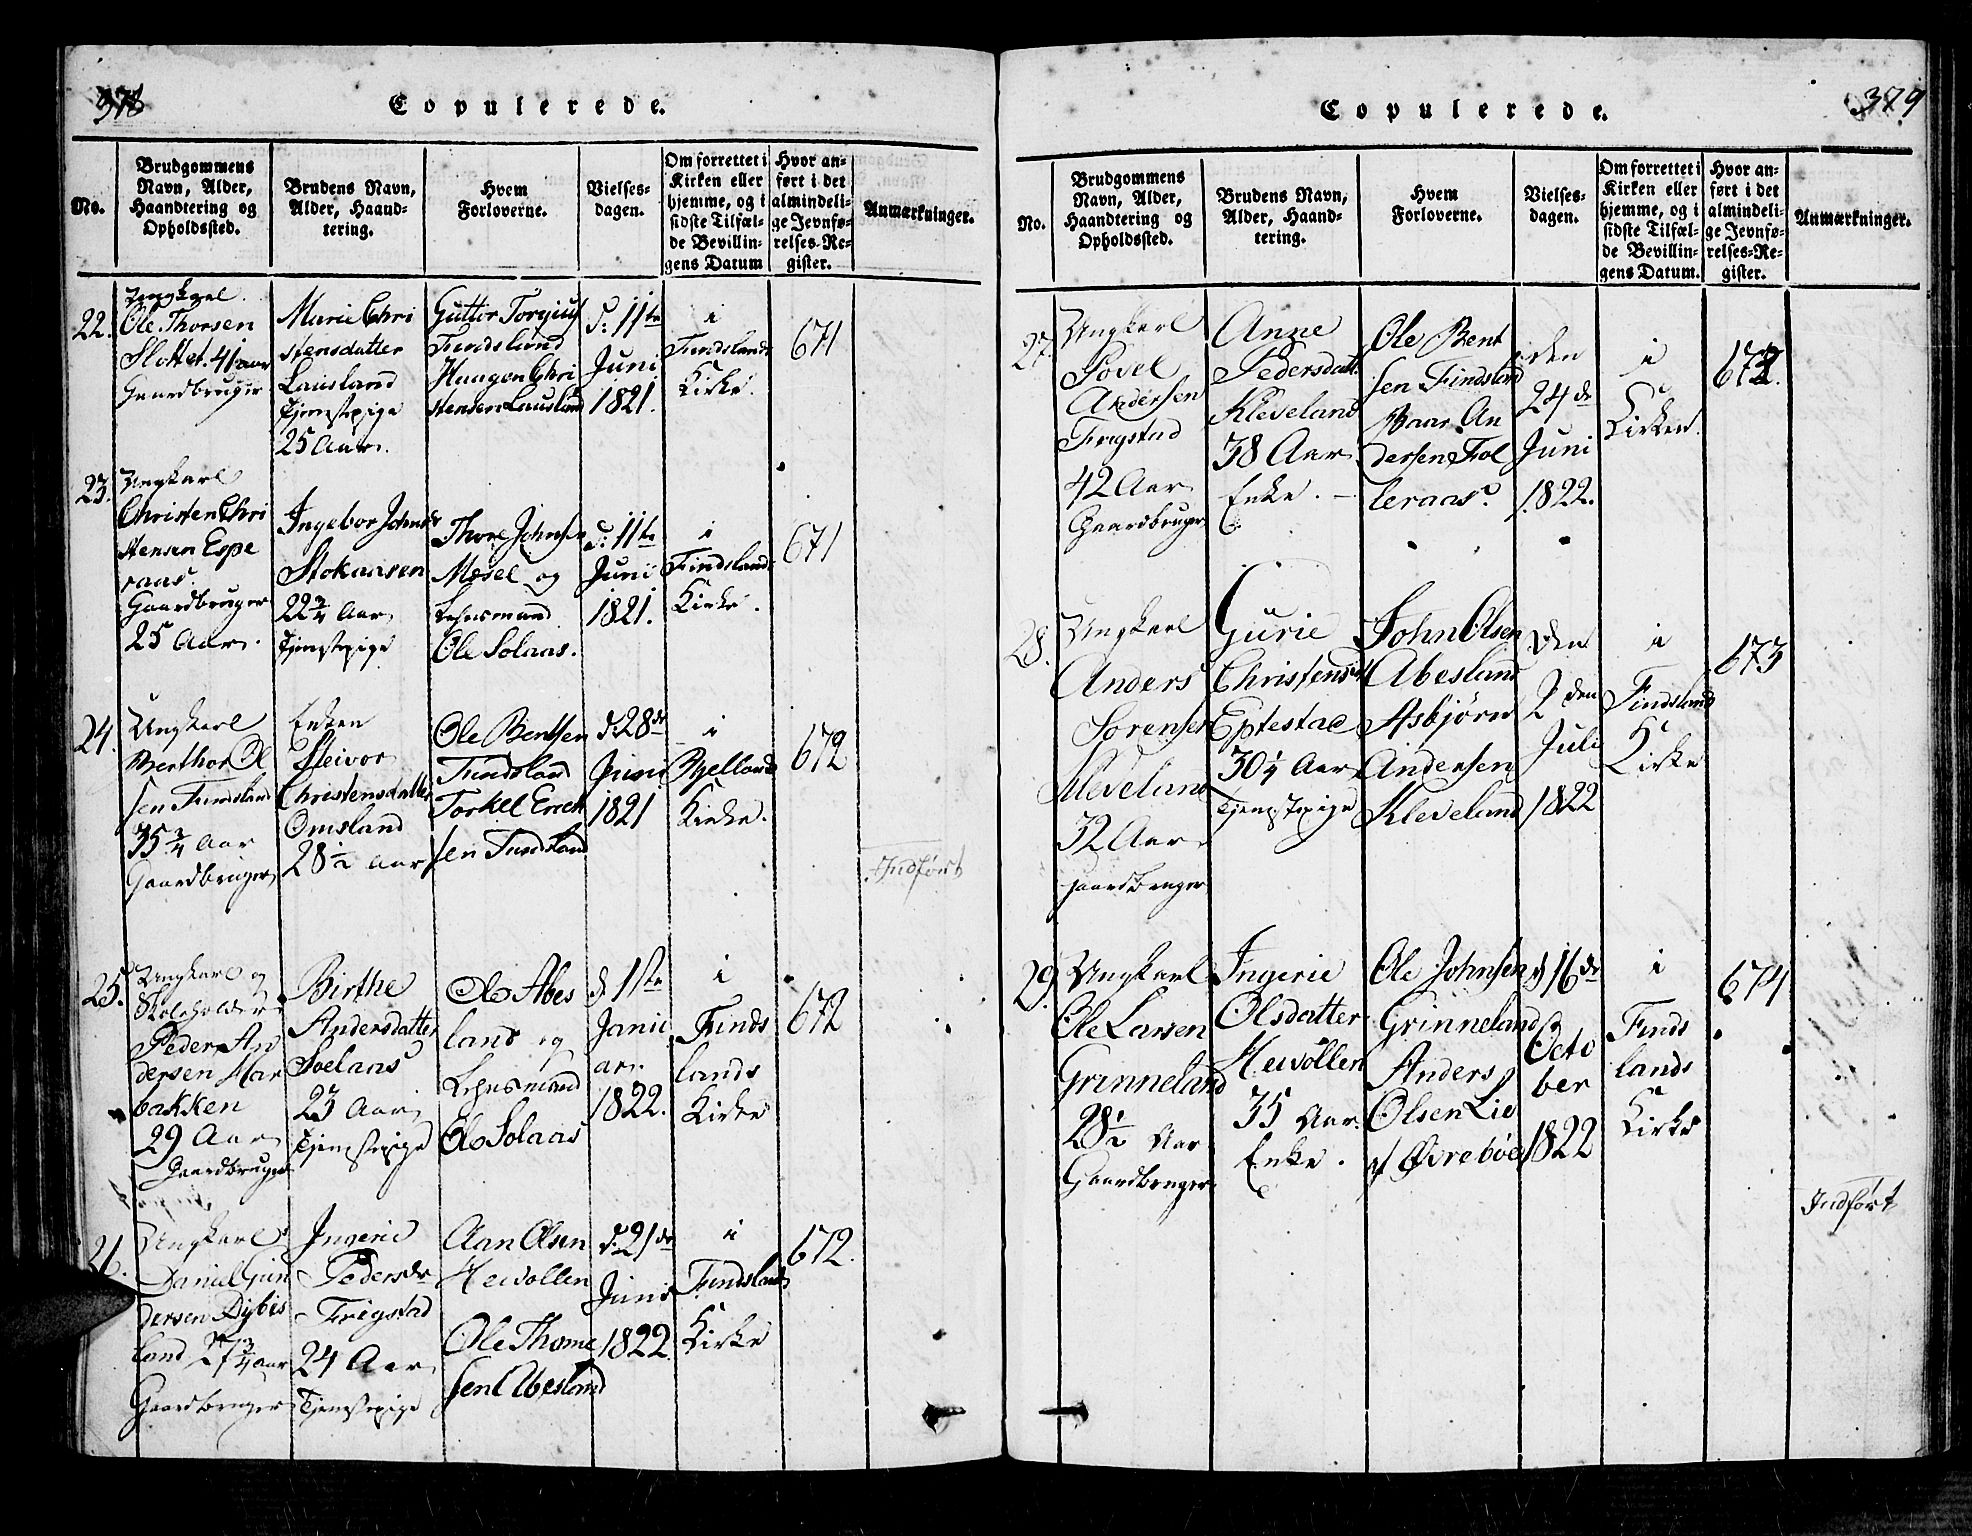 378
Copulerede.
No.
Brudgommens
Navn, Alder,
Haandtering og
Opholdssted.
Brudens Navn,
Alder, Haand-
tering.
Hvem
Forloverne.
Vielses-
dagen.
Om forrettet i
Kirken eller
hjemme, og i
sidste Tilfæl-
de Bevillin-
gens Datum
Hvor an-
ført i det
almindeli-
ge Jevnfø-
relses-Re-
gister.
Anmærkninger.
22.
Ungkarl
Ole Thorsen
Slottet. 41 aar
Gaardbruger
Marie Chri
stensdatter
Lausland
Tjenestepige
25 Aar.
Guttor Torgius
Findsland
Haagen Chri
stensen Lausland
d: 11te
Juni
1821.
i
Findslands
Kirke.
671
23.
Ungkarl
Christen Chri
stensen Espe
raas.
Gaardbruger
25 Aar.
Ingebor Johnsdr
Stokaasen
22 3/4 Aar
Tjenestepige
Thore Johnsen
Mosel og
Lehnsmand
Ole Solaas.
d: 11te
Juni
1821.
i
Findslands
Kirke.
671
24.
Ungkarl
Berthor Ol
sen Findsland
35 3/4 Aar
Gaardbruger
Enken
Sleivor
Christensdatter
Omsland
28 1/2 Aar
Ole Bentsen
Findsland
Torkel Erich
sen Findsland
d. 28de
Juni
1821
i
Bjellands
Kirke.
672
Indført
25.
Ungkarl og
Skoleholder
Peder An
dersen Har
bakken
29 Aar
Gaardbruger
Birthe
Andersdatter
Soelaas
23 Aar
Tjenestepige
Ole Abes
land og
Lehnsmand
Ole Solaas
d 1ste
Janu
ar.
1822.
i
Finds
lands
Kirke
672
26.
Ungkarl
Daniel Gun
dersen Dybes
land 27 3/4 aar
Gaardbruger
Ingerid
Pedersdr
Frigstad
24 Aar
Tjenestepige
Aan Olsen
Heivollen
Ole Thome
sen Abesland
d. 21de
Juni
1822.
i
Findslands
Kirke
672.
379
Copulerede.
No.
Brudgommens
Navn, Alder,
Haandtering og
Opholdssted.
Brudens Navn,
Alder, Haand-
tering.
Hvem
Forloverne.
Vielses-
dagen.
Om forrettet i
Kirken eller
hjemme, og i
sidste Tilfæl-
de Bevillin-
gens Datum.
Hvor an-
ført i det
almindeli-
ge Jevnfø-
relses-Re-
gister.
Anmærkninger.
27.
Ungkarl
Povel
Andersen
Frigstad
42 Aar
Gaardbruger
Anne
Pedersdatt
Kleveland
38 Aar
Enke.
Ole Bent
sen Findsland
Baar An
dersen Fol
leraas.
den
24de
Juni
1822.
i
Kirken.
672.
28.
Ungkarl
Anders
Sørensen
Kleveland
32 Aar
Gaardbruger
Gurie
Christensd
Eptestad
30 1/4 Aar
Tjenestepige
John Olsen
Abesland
Asbjørn
Andersen
Kleveland
Den
2den
Juli
1822
i
Findslands
Kirke
673
29.
Ungkarl
Ole Larsen
Grinneland
28 1/2 Aar
Gaardbruger
Ingerie
Olsdatter
Heivollen
35 Aar.
Enke.
Ole Johnsen
Grinneland
Anders
Olsen Lie
af Øvrebøe
d 16de
Octo
ber
1822
i
Finds
lands
Kirke
674
Indført